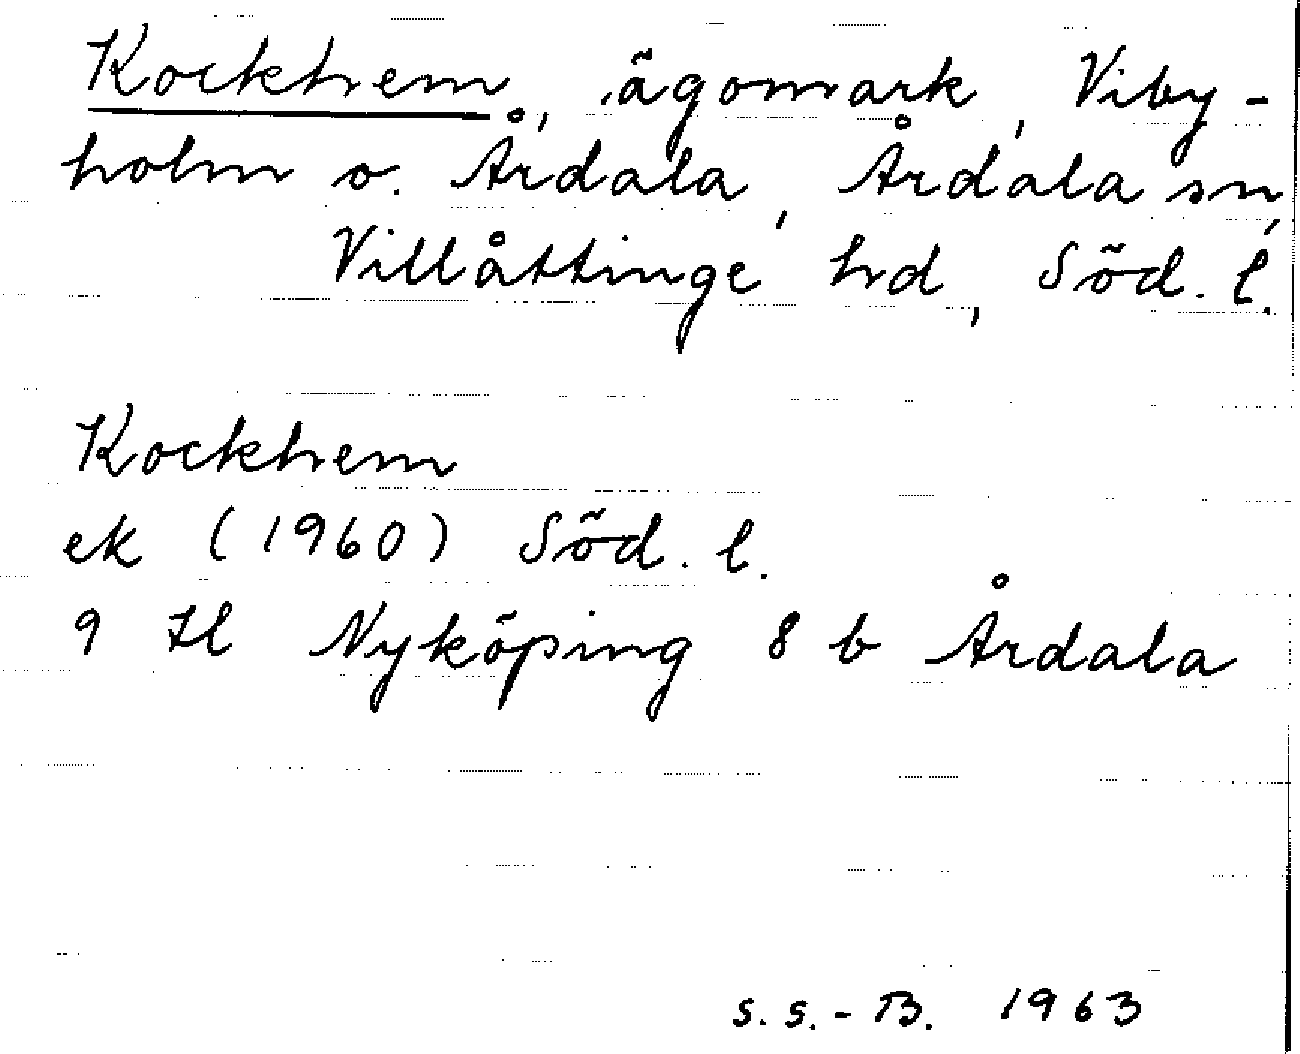 Kockhem, ägomark, Viby-
holm o. Årdala, Årdala sn,
Villåttinge hd, Söd. l.
Kockhem
ek (1960) Söd. l.
9 H Nyköping 8 b Årdala
S.S.-B. 1963